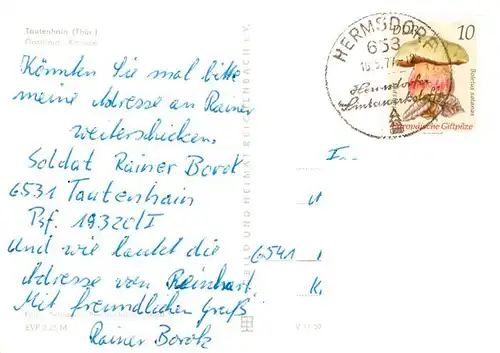 Tautenhain (Thür.)
Könnten Sie mal bitte
meine Adresse an Rainer
weiterschicken.
Soldat Rainer Borok
6531 Tautenhain
Psf. 19320/I
Und wie lautet die
Adresse von Reinhart.
Mit freundlichen Gruß
Rainer Borok
EVP 0,25 M
BILD UND HEIMAT REICHENBACH
V 11 50
HERMSDORF
653
Hermsdorfer
DDR 10
Boletus satanas
Europäische Giftpilze
6541